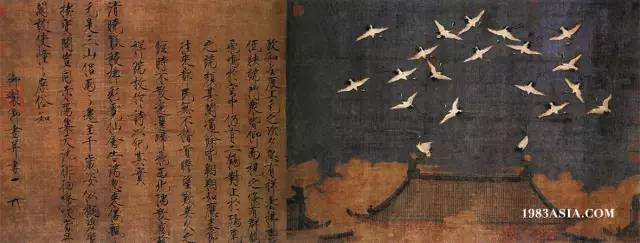 政和壬辰上元之次夕忽有祥雲拂鬱
低映端門眾皆仰而視之倏有群鶴
飛鳴於空中仍有二鶴對止於鴟尾
之端頗甚閒適餘皆翱翔如應奏節
往來都民無不稽首瞻望歎異久之
經時不散迤邐歸飛西北隅散感茲
祥瑞故作詩以紀其實
清曉觚稜拂彩霓仙禽告瑞忽來儀飄飄
元是三山侶兩兩還呈千歲姿似擬碧鸞
棲寶閣豈同赤雁集天池徘徊嘹唳當丹
闕故使憧憧庶俗知
御製御畫并書
1983ASIA.COM